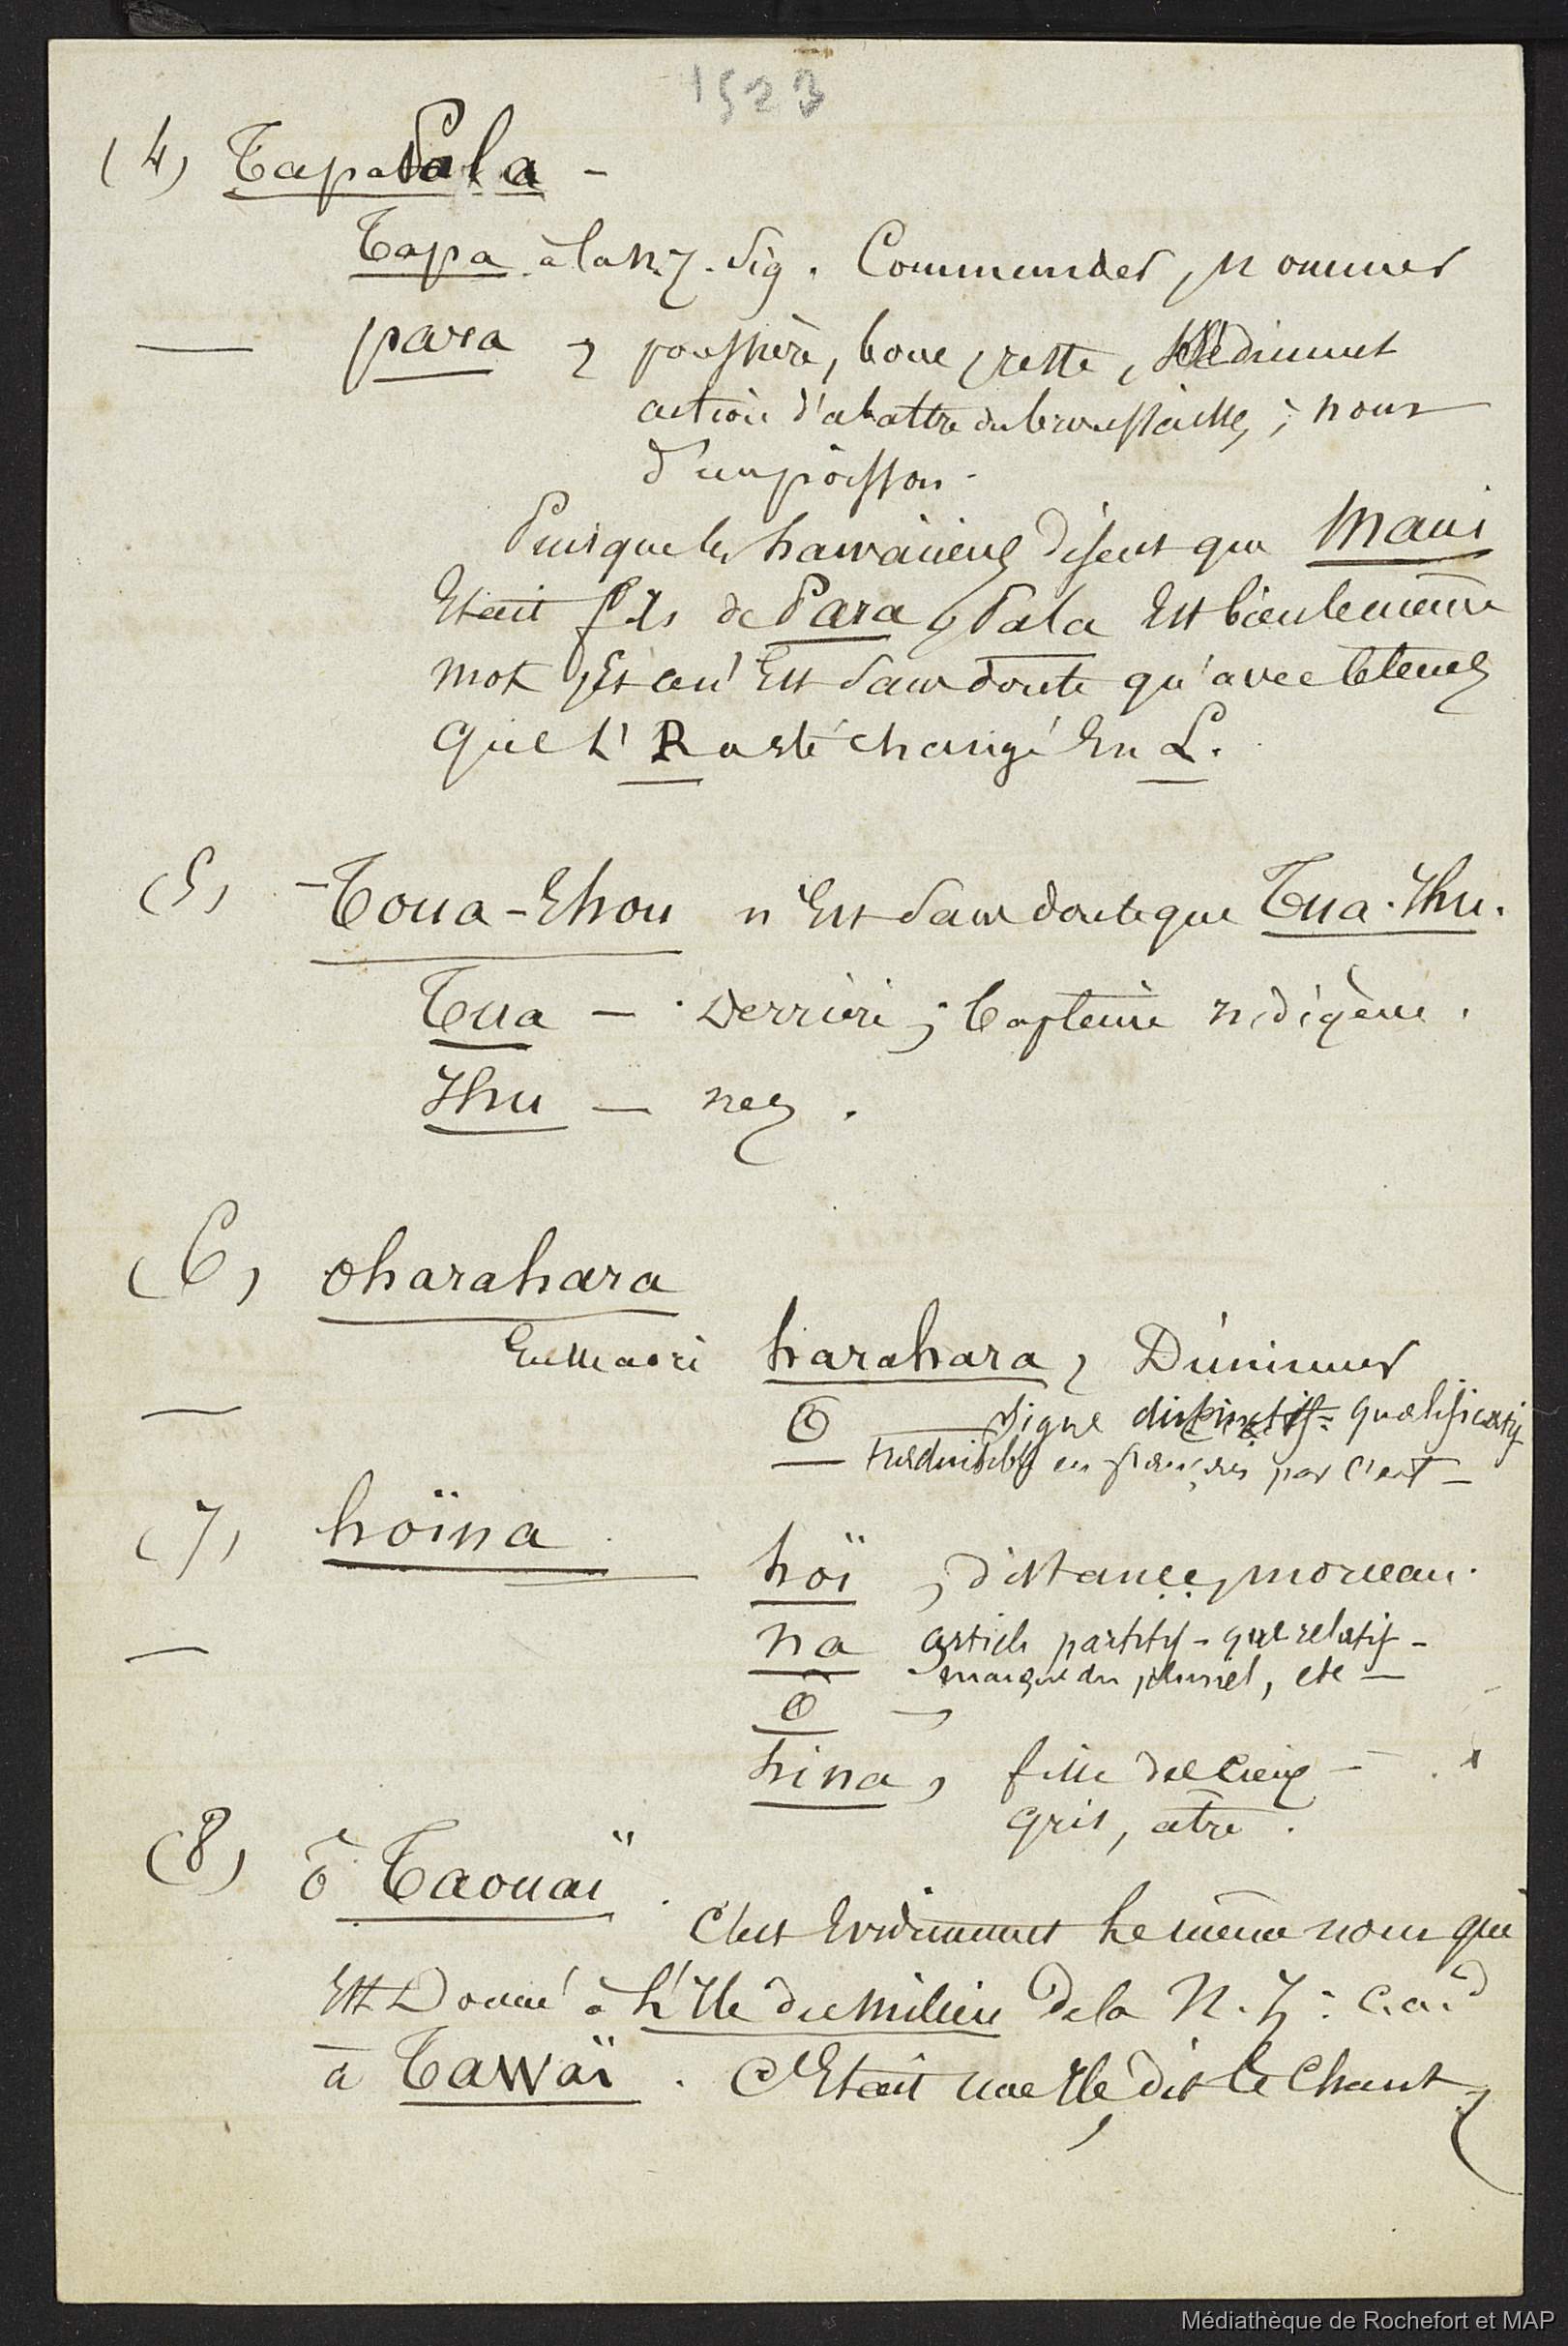 1523
(4) TapaPala -
Tapa à la n. z. sig. Commander, nommer
— para , poussière, boue, reste, sédiment
action d'abattre du broussailles ; nom
d'un poisson.
Puisque les hawaiiens disent que Maui
Etait fils de Para, Pala Est bien le même
mot, Et ce n'Est sans doute qu'avec le tems
que l'R a été changé En L.
(5) - Toua-Ehou n'Est sans doute que Tua-Ihu.
Tua — Derrière ; Capitaine indigène.
Ihu — nez.
(6) oharahara
En Maori harahara, Diminuer
— O — signe distinctif = qualificatif
traduisible en français par c'est —
(7) hoïna
hoï , distance, morceau.
— na article partitif - que relatif -
marque du pluriel, etc —
O — ,
hina, fille des cieux —
gris, atre.
(8) ô Taouaï.
C'est Evidemment le même nom qui
Est Donné à l'Ile du milieu de la N. Z : c. a. d
à Tawaï. C'Etait une Ile, dit le Chant,
Médiathèque de Rochefort et MAP